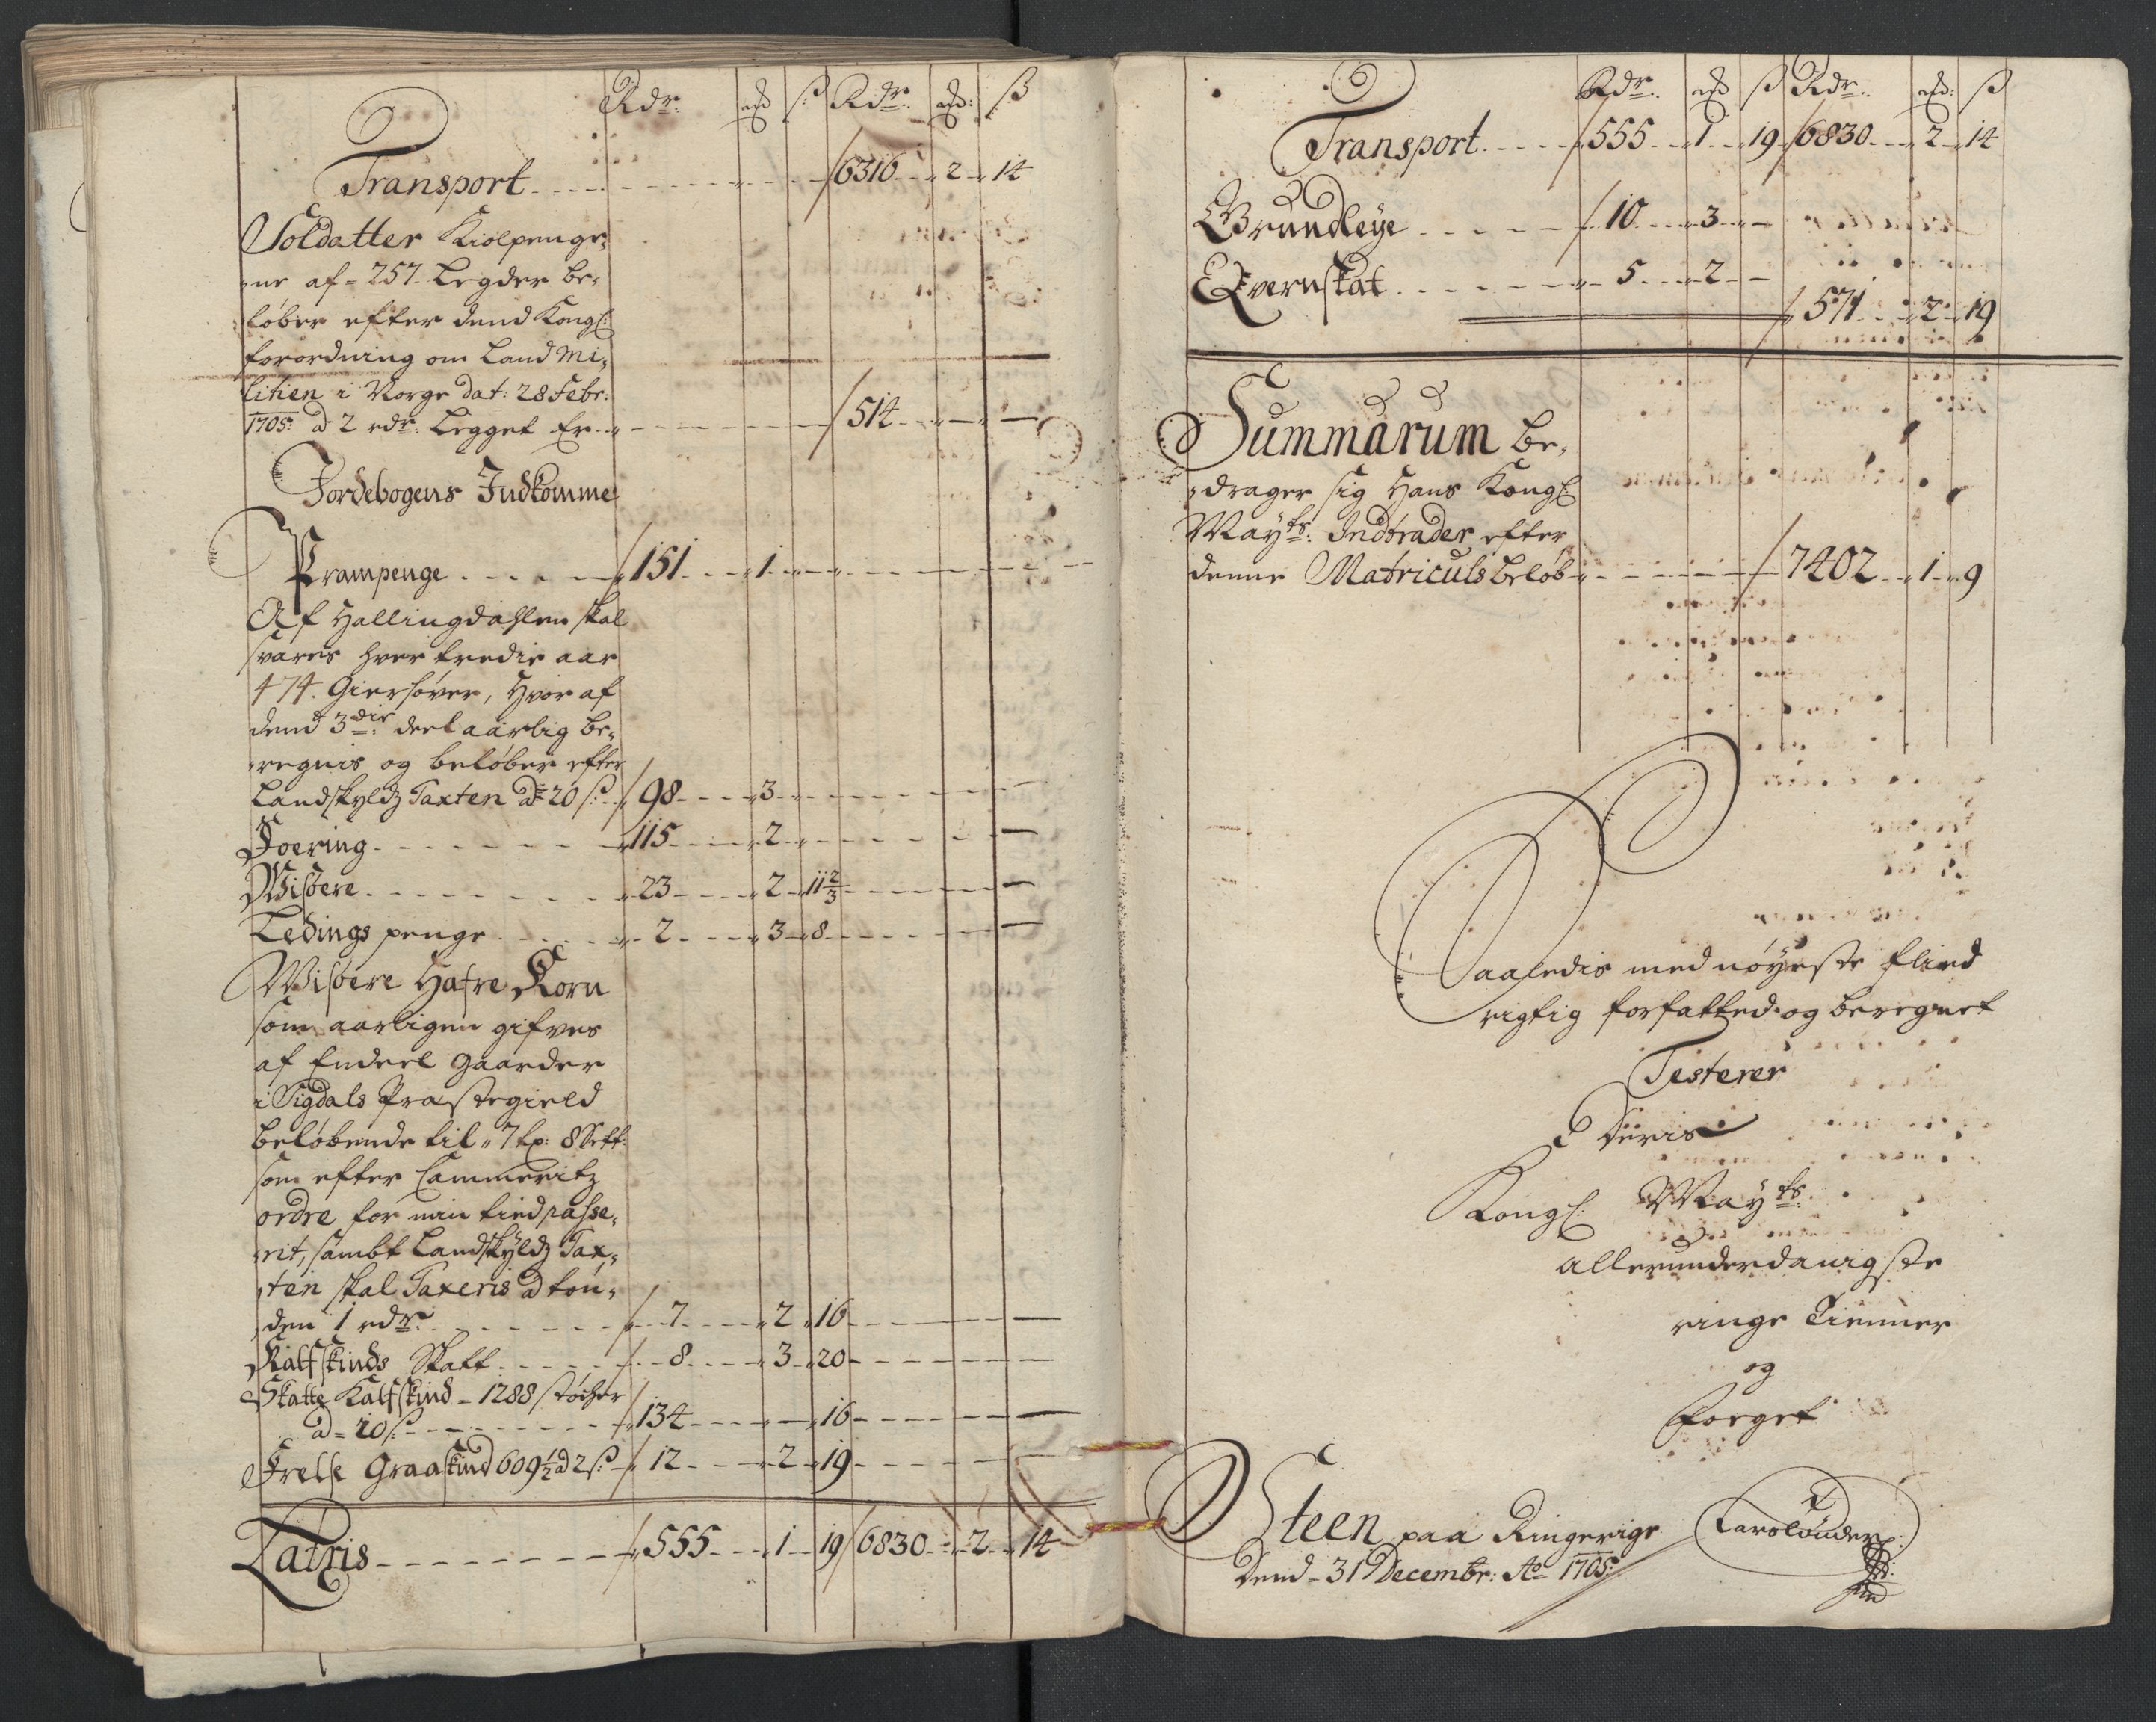 Rdr. ß Rdr. ß
Transport 6316 2 14
Soldatter Kiolpenge,
ne af 257 Legder be,
løber efter dend Kongl:
forordning om Land Mi,
litien i Norge dat: 28 Febr:
1705: a 2 rdr: Legget Er 514
Jordebogens Indkomme
Prampenge 151 1
Af Hallingdahlen skal
svares hver tredie aar
474. Giersører, Hvor af
dend 3die: deel aarlig be,
regnis og beløber efter
Landskyldz Taxten ad 20 ß: 98 3
Foering 115 2
Wisøere 23 2 11 2/3
Ledings penge 2 3 8
Wisøere Hafre Korn
som aarligen gifves
af Endeel Gaarder
i Sigdals Præstegield
beløbende til 7 tp: 8 Sett:
som efter Cammeritz
ordre for min tiid passe,
rit, sambt Landskyldz Tax,
ten skal Taxeris ad tøn,
den 1 rdr: 7 2 16
Kalfskinds Skatt 8 3 20
Skatte Kalfskind 1288 støcher
ad 10 ß: 134 16
Frelse Graaskind 609 1/2 ad 2 ß: 12 2 19
Latris 555 1 19 6830 2 14
Rdr. ß Rdr. ß
Transport 555 1 19 6830 2 14
Grundleye 10 3
Qvernskat 5 2
571 2 19
Summarum be,
drager sig Hans Kongl:
Mayts: Indtrader efter
denne Matriculs beløb 7402 1 9
Saaledis med nøyeste fliid
rigtig forfatted og beregnet
Testerer
Kongl: Mayts:
allerunderdanigste
ringe Tienner
og
Foeget
Steen paa Ringerige
Dend 31 Decembr: Ao 1705: